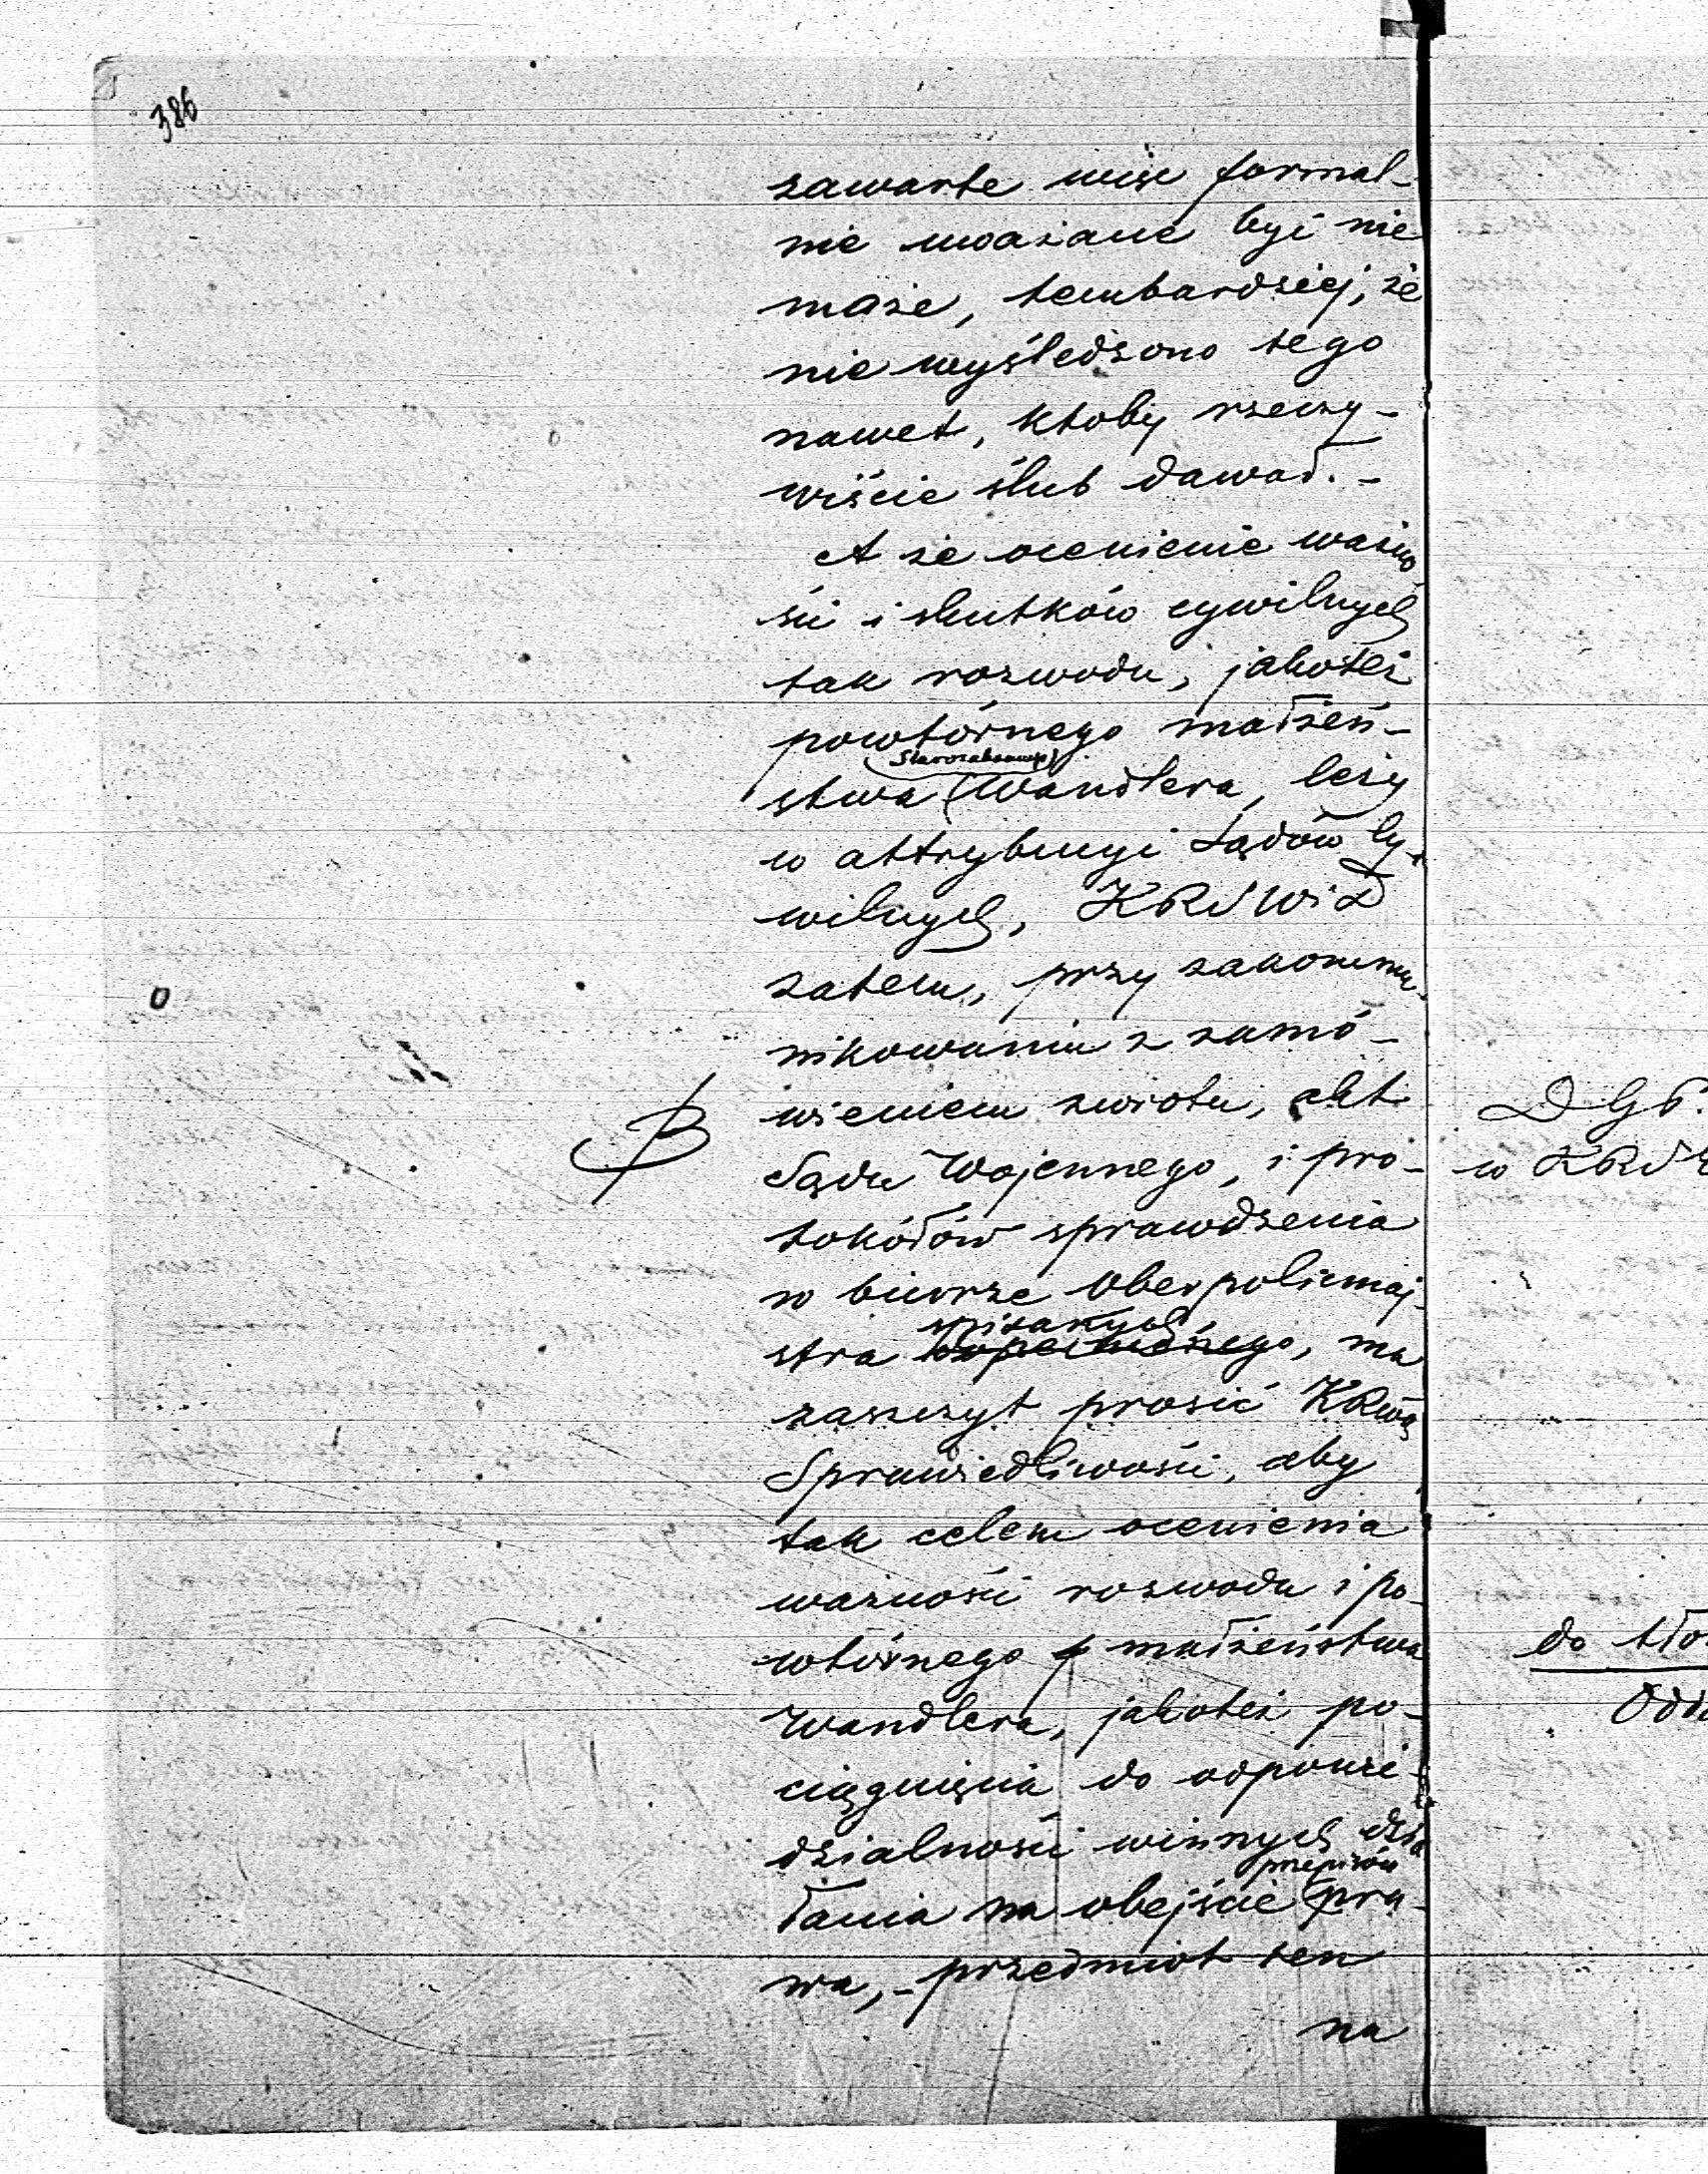 386
zawarte więc formal-
nie uważane być nie
może, tembardziej, że
nie wyśledzono tego
nawet, ktoby rzeczy-
wiście ślub dawał. -
A że ocenienie ważno
ści i skutków cywilnych
tak rozwodu, jakoteż
powtórnego małżeń-
Starozakonnego
stwa Wandlera, leży
w attrybucyi Sądów Cy-
wilnych, KRSWiD
zatem, przy zakommu-
nikowaniu z zamó-
wieniem zwrotu, akt
Sądu Wojennego, i pro-
tokółów sprawdzenia
w biurze Oberpolicmaj-
spisanych
stra, ma
zaszczyt prosić KRwą
Sprawiedliwości, aby
tak celem ocenienia
ważności rozwodu i po-
wtórnego małżeństwa
Wandlera, jakoteż po-
ciągnięcia do odpowie-
dzialności winnych dzia
przepisów
łania na obejście pra-
wa, - przedmiot ten
na
B
DGP.
w KRS
do Mo
Odd